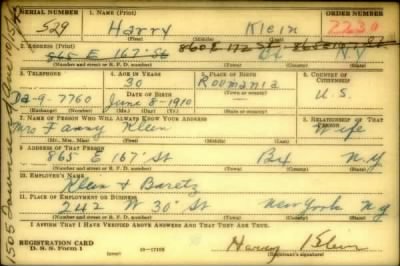 SERIAL NUMBER 1. NAME (Print) ORDER NUMBER
529 Harry Klein 2230
(First) (Middle) (Last)
2. ADDRESS (Print)
865 E 167 St 860 E 172 St Bx N Y
(Number and street or R. F. D. number) (Town) (County) (State)
3. TELEPHONE 4. AGE IN YEARS 5. PLACE OF BIRTH 6. COUNTRY OF CITIZENSHIP
30 Roumania
Da-9-7760 June 8-1910 U.S.
(Exchange) (Number) (Mo.) (Day) (Yr.) (State or country)
7. NAME OF PERSON WHO WILL ALWAYS KNOW YOUR ADDRESS 8. RELATIONSHIP OF THAT PERSON
Mrs Fanny Klein Wife
(Mr., Mrs., Miss) (First) (Middle) (Last)
9. ADDRESS OF THAT PERSON
865 E 167 St Bx N.Y
(Number and street or R. F. D. number) (Town) (County) (State)
10. EMPLOYER'S NAME
Klein & Baretz
11. PLACE OF EMPLOYMENT OR BUSINESS
242 W 30 St New York N.Y
(Number and street or R. F. D. number) (Town) (County) (State)
I AFFIRM THAT I HAVE VERIFIED ABOVE ANSWERS AND THAT THEY ARE TRUE.
REGISTRATION CARD
D. S. S. Form 1 (over) 16-17105 Harry Klein
(Registrant's signature)
1505